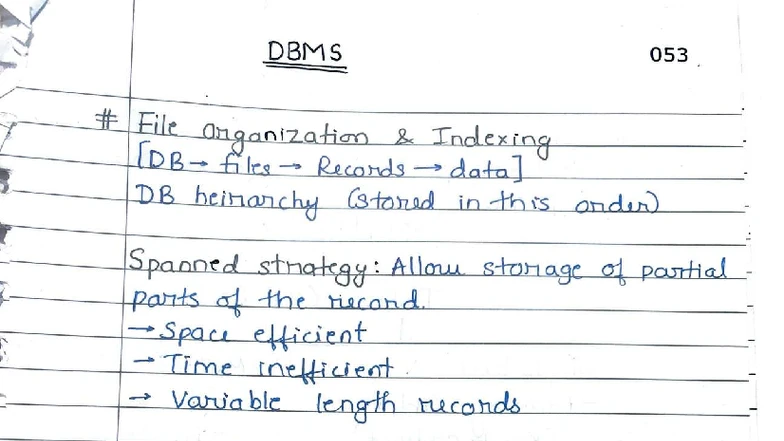 DBMS
053
# File organization & Indexing
[DB → files → Records → data]
DB heirarchy (stored in this order)
Spanned strategy: Allow storage of partial
parts of the record.
→ Space efficient
→ Time inefficient.
→ Variable length records